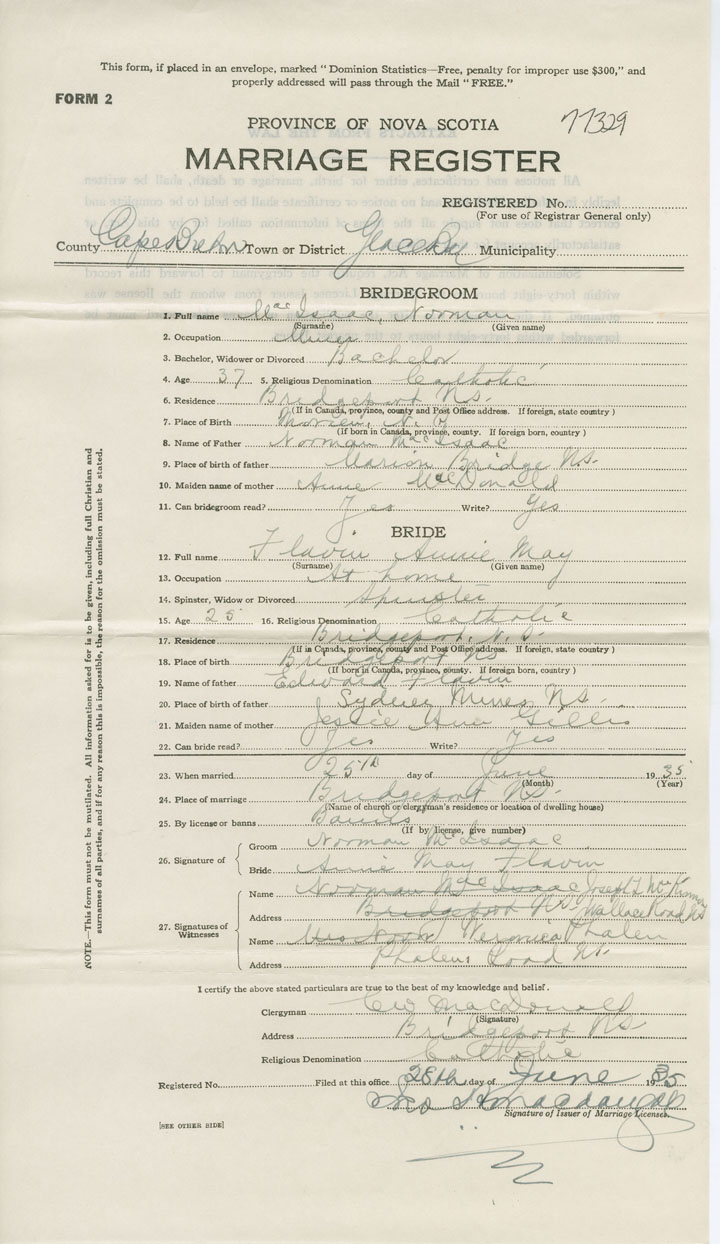 This form, if placed in an envelope, marked "Dominion Statistics—Free, penalty for improper use $300," and
properly addressed will pass through the Mail "FREE."
FORM 2
PROVINCE OF NOVA SCOTIA
77329
MARRIAGE REGISTER
REGISTERED No.
(For use of Registrar General only)
County Cape Breton Town or District Glace Bay Municipality
BRIDEGROOM
1. Full name MacIsaac, Norman
(Surname) (Given name)
2. Occupation Miner
3. Bachelor, Widower or Divorced Bachelor
4. Age 37 5. Religious Denomination Catholic
6. Residence Bridgeport N.S.
(If in Canada, province, county and Post Office address. If foreign, state country )
7. Place of Birth
(If born in Canada, province, county. If foreign born, country )
8. Name of Father Norman MacIsaac
9. Place of birth of father Marion Bridge N.S.
10. Maiden name of mother Annie McDonald
11. Can bridegroom read? Yes Write? Yes
BRIDE
12. Full name Flavin Annie May
(Surname) (Given name)
13. Occupation At home
14. Spinster, Widow or Divorced Spinster
15. Age 25 16. Religious Denomination Catholic
17. Residence Bridgeport, N.S.
(If in Canada, province, county and Post Office address. If foreign, state country )
18. Place of birth Bridgeport NS
(If born in Canada, province, county. If foreign born, country )
19. Name of father Edward Flavin
20. Place of birth of father Sydney Mines N.S.
21. Maiden name of mother Jessie Ann Gillis
22. Can bride read? Yes Write? Yes
23. When married 25th day of June 1935
(Month) (Year)
24. Place of marriage Bridgeport N.S.
(Name of church or clergyman's residence or location of dwelling house)
25. By license or banns Banns
(If by license, give number)
26. Signature of
Groom Norman McIsaac
Bride Annie May Flavin
27. Signatures of Witnesses
Name Norman MacIsaac Joseph L.
Address Bridgeport NS Wallace Road NS
Name Veronica Phalen
Address Phalen Road NS.
I certify the above stated particulars are true to the best of my knowledge and belief.
Clergyman MacDonald
(Signature)
Address Bridgeport NS
Religious Denomination Catholic
Registered No. Filed at this office 28th day of June 1935
Signature of Issuer of Marriage Licenses.
[SEE OTHER SIDE]
NOTE.—This form must not be mutilated. All information asked for is to be given, including full Christian and
surnames of all parties, and if for any reason this is impossible, the reason for the omission must be stated.